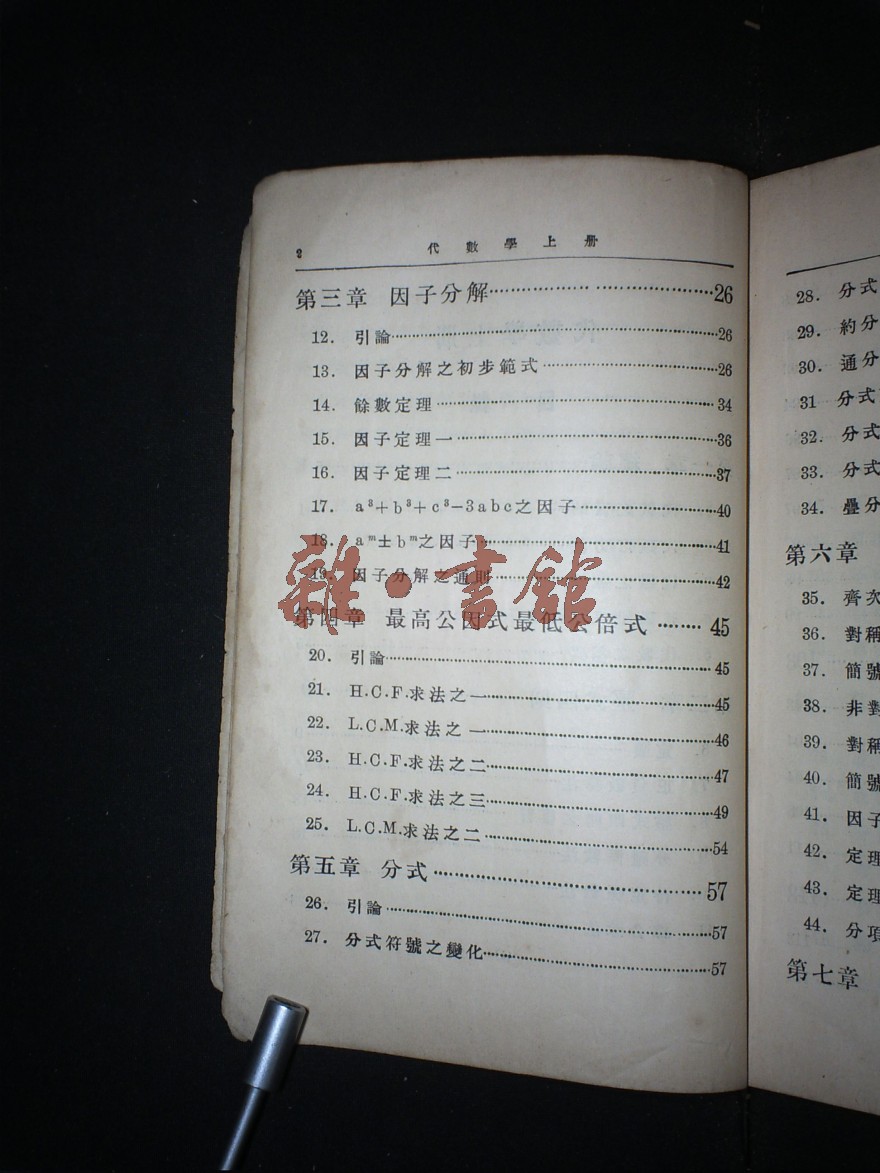 2 代數學上册
第三章 因子分解………………………26
12. 引論………………………26
13. 因子分解之初步範式………………………26
14. 餘數定理………………………34
15. 因子定理一………………………36
16. 因子定理二………………………37
17. a³+b³+c³−3abc之因子………………………40
18. aᵐ±bᵐ之因子………………………41
19. 因子分解之通則………………………42
雜·書館
第四章 最高公因式最低公倍式………45
20. 引論………………………45
21. H.C.F.求法之一………………………45
22. L.C.M.求法之一………………………46
23. H.C.F.求法之二………………………47
24. H.C.F.求法之三………………………49
25. L.C.M.求法之二………………………54
第五章 分式………………………57
26. 引論………………………57
27. 分式符號之變化………………………57
28. 分式
29. 約分
30. 通分
31 分式
32. 分式
33. 分式
34. 疊分
第六章
35. 齊次
36. 對稱
37. 簡號
38. 非對
39. 對稱
40. 簡號
41. 因子
42. 定理
43. 定理
44. 分項
第七章